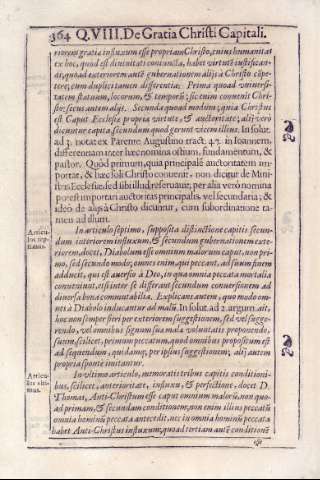 364 Q.VIII. De Gratia Christi Capitali.
riorem gratiæ influxum esse proprium Christo, cuius humanitas
ex hoc, quod est divinitati coniuncta, habet virtutē iustificandi,
quoad exteriorem autē gubernationem alijs à Christo cōpetere,
cum duplici tamen differentia: Prima quoad universitatem
statuum, locorum, & temporū; sic enim convenit Christo:
secus autem alijs. Secunda quoad modum; quia Christus
est Caput Ecclesiæ propria virtute, & auctoritate; alij verò
dicuntur capita secundum quod gerunt vicem illius. In solut.
ad 3. notat ex Parente Augustino tract. 47. in Ioannem,
differentiam inter hæc nomina ostium, fundamentum, &
pastor. Quòd primum, quia principalē auctoritatem importat,
& hæc soli Christo convenit, non dicitur de Ministris
Ecclesiæ, sed sibi illud reservavit, per alia verò nomina
potest importari auctoritas principalis, vel secundaria; &
ideò de alijs à Christo dicuntur, cum subordinatione tamen
ad illum.
Articulus septimus.
In articulo septimo, supposita distinctione capitis secundum
interiorem influxum, & secundum gubernationem exteriorem,
docet, Diabolum esse omnium malorum caput, non primo,
sed secundo modo; omnes enim, qui peccant, ad suum finem
adducit, qui est aversio à Deo, in qua omnia peccata mortalia
conveniunt, etsi inter se differant secundum conversionem ad
diversa bona commutabilia. Explicans autem, quo modo omnes
à Diabolo inducantur ad malū. In solut. ad 2. argum. ait,
hoc non semper fieri per exteriorem suggestionem, sed vel suggerendo,
vel omnibus signum suæ mala voluntatis proponendo,
suum, scilicet, primum peccatum, quod omnibus propositum est
ad sequendum, quidamq; per ipsius suggestionem; alij autem
propria sponte imitantur.
Articulus ultimus.
In ultimo articulo, memoratis tribus capitis conditionibus,
scilicet, anterioritate, influxu, & perfectione, docet D.
Thomas, Anti-Christum esse caput omnium malorū, non quoad
primam, & secundam conditionem, non enim illius peccatū
omnia hominū peccata antecedit, nec in omnia hominū peccata
habet Anti-Christus influxum, quoad tertiam autē conditionē
est